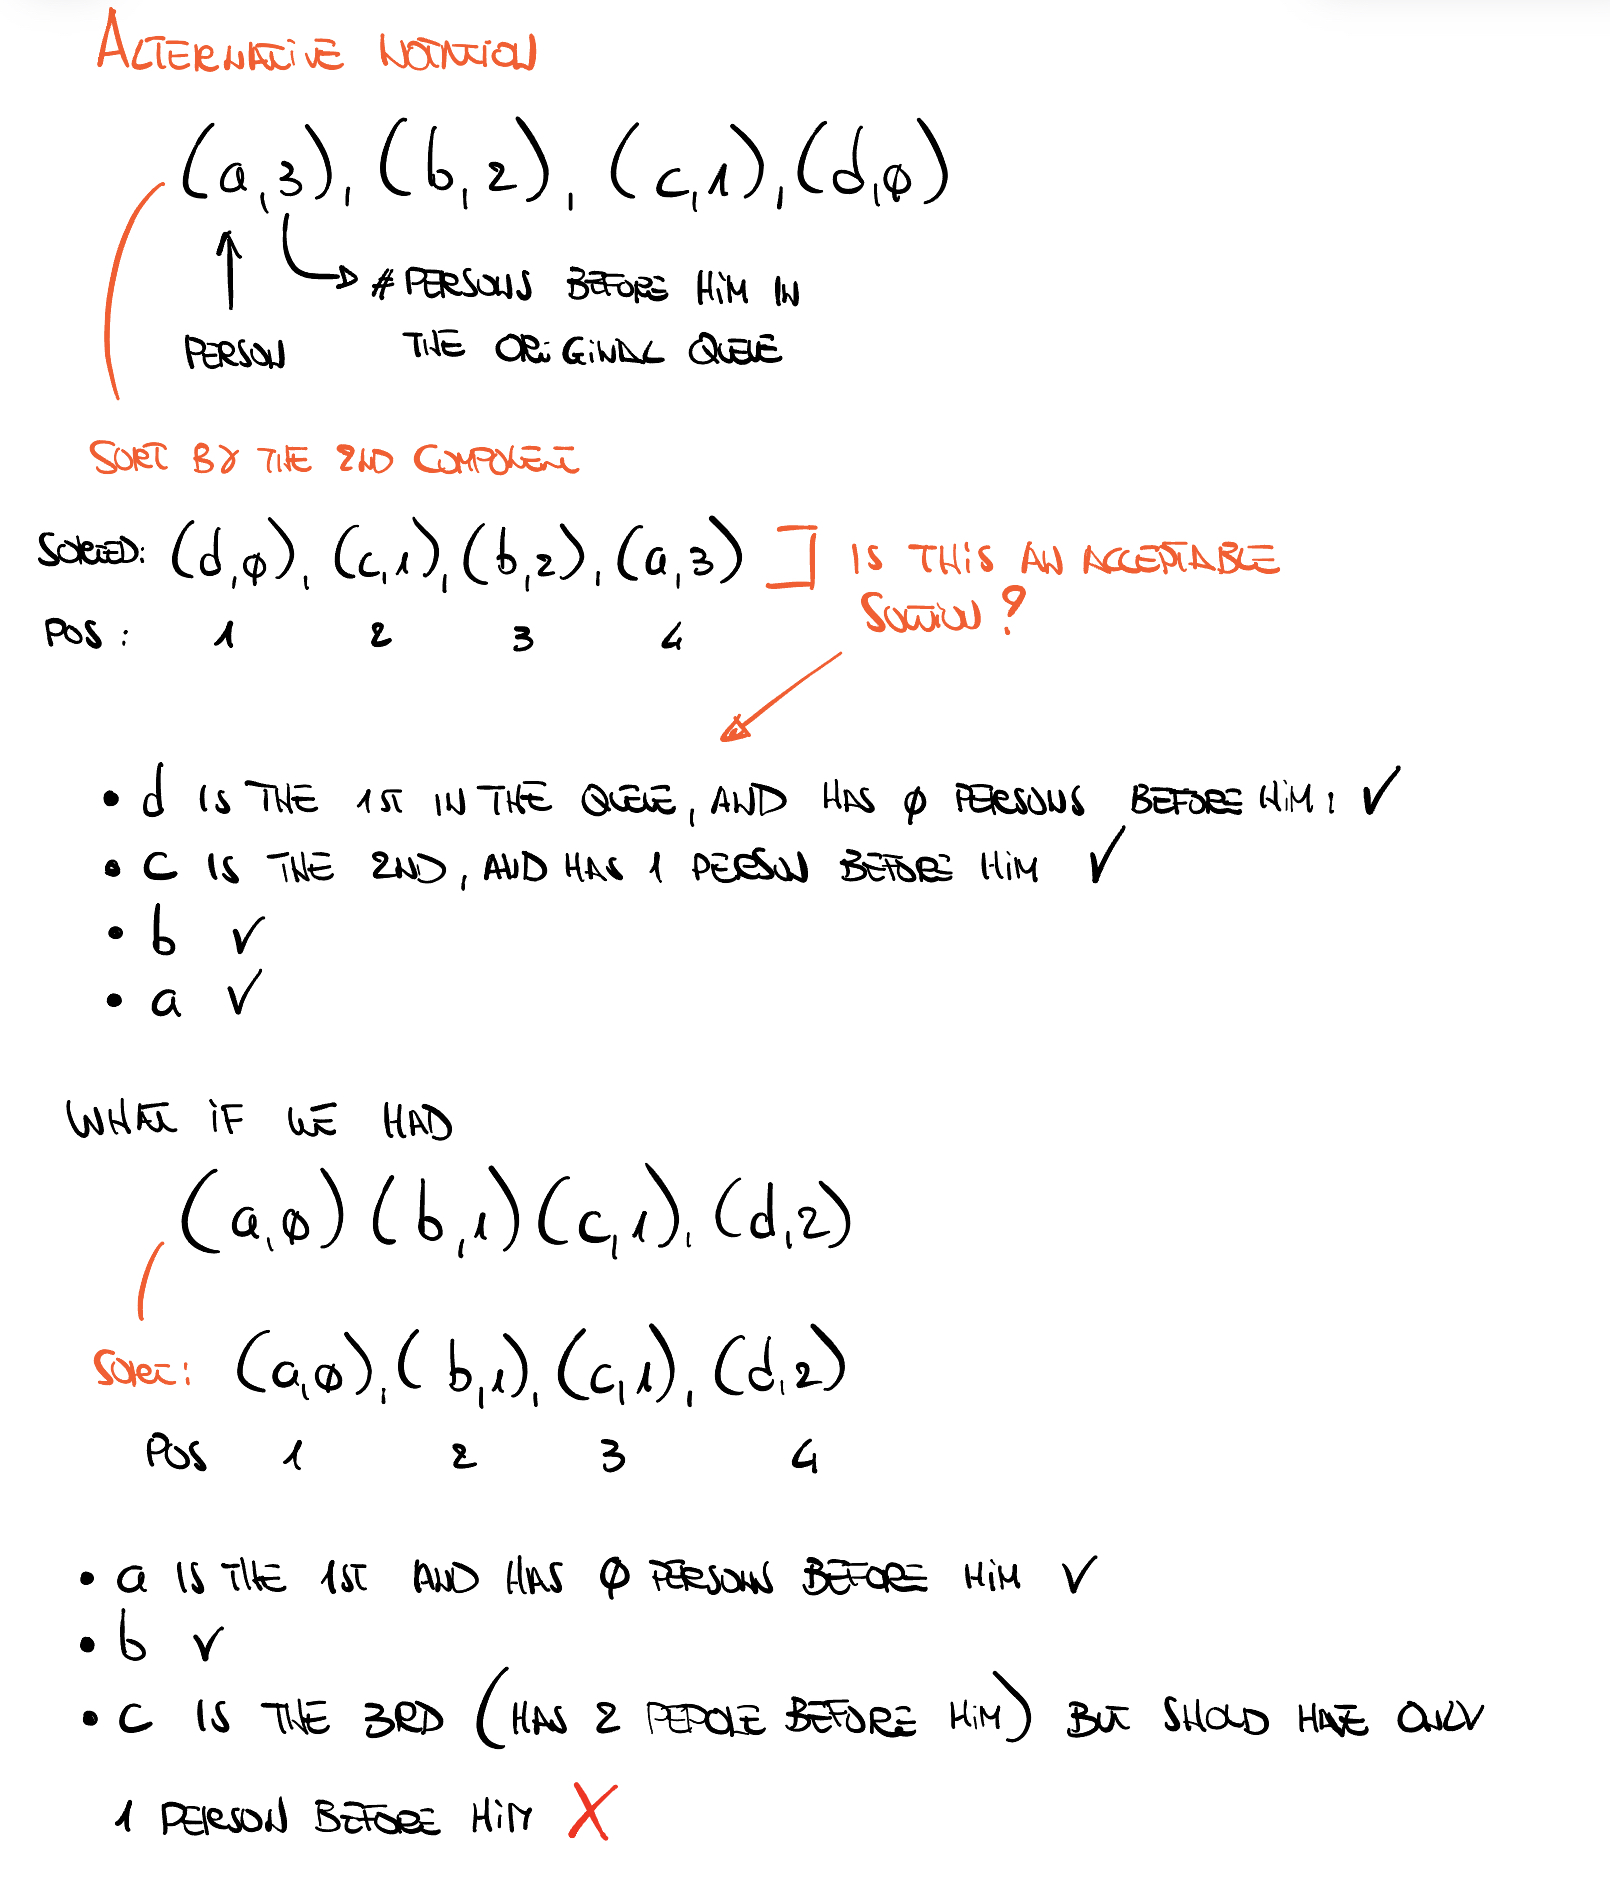 ALTERNATIVE NOTATION
(a,3), (b,2), (c,1), (d,ø)
# PERSONS BEFORE HIM IN
PERSON THE ORIGINAL QUEUE
SORT BY THE 2ND COMPONENT
SORTED: (d,ø), (c,1), (b,2), (a,3) IS THIS AN ACCEPTABLE
SOLUTION?
POS: 1 2 3 4
• d IS THE 1ST IN THE QUEUE, AND HAS ø PERSONS BEFORE HIM: ✓
• c IS THE 2ND, AND HAS 1 PERSON BEFORE HIM ✓
• b ✓
• a ✓
WHAT IF WE HAD
(a,ø) (b,1) (c,1), (d,2)
SORT: (a,ø), (b,1), (c,1), (d,2)
POS 1 2 3 4
• a IS THE 1ST AND HAS ø PERSONS BEFORE HIM ✓
• b ✓
• c IS THE 3RD (HAS 2 PEPOLE BEFORE HIM) BUT SHOULD HAVE ONLY
1 PERSON BEFORE HIM X